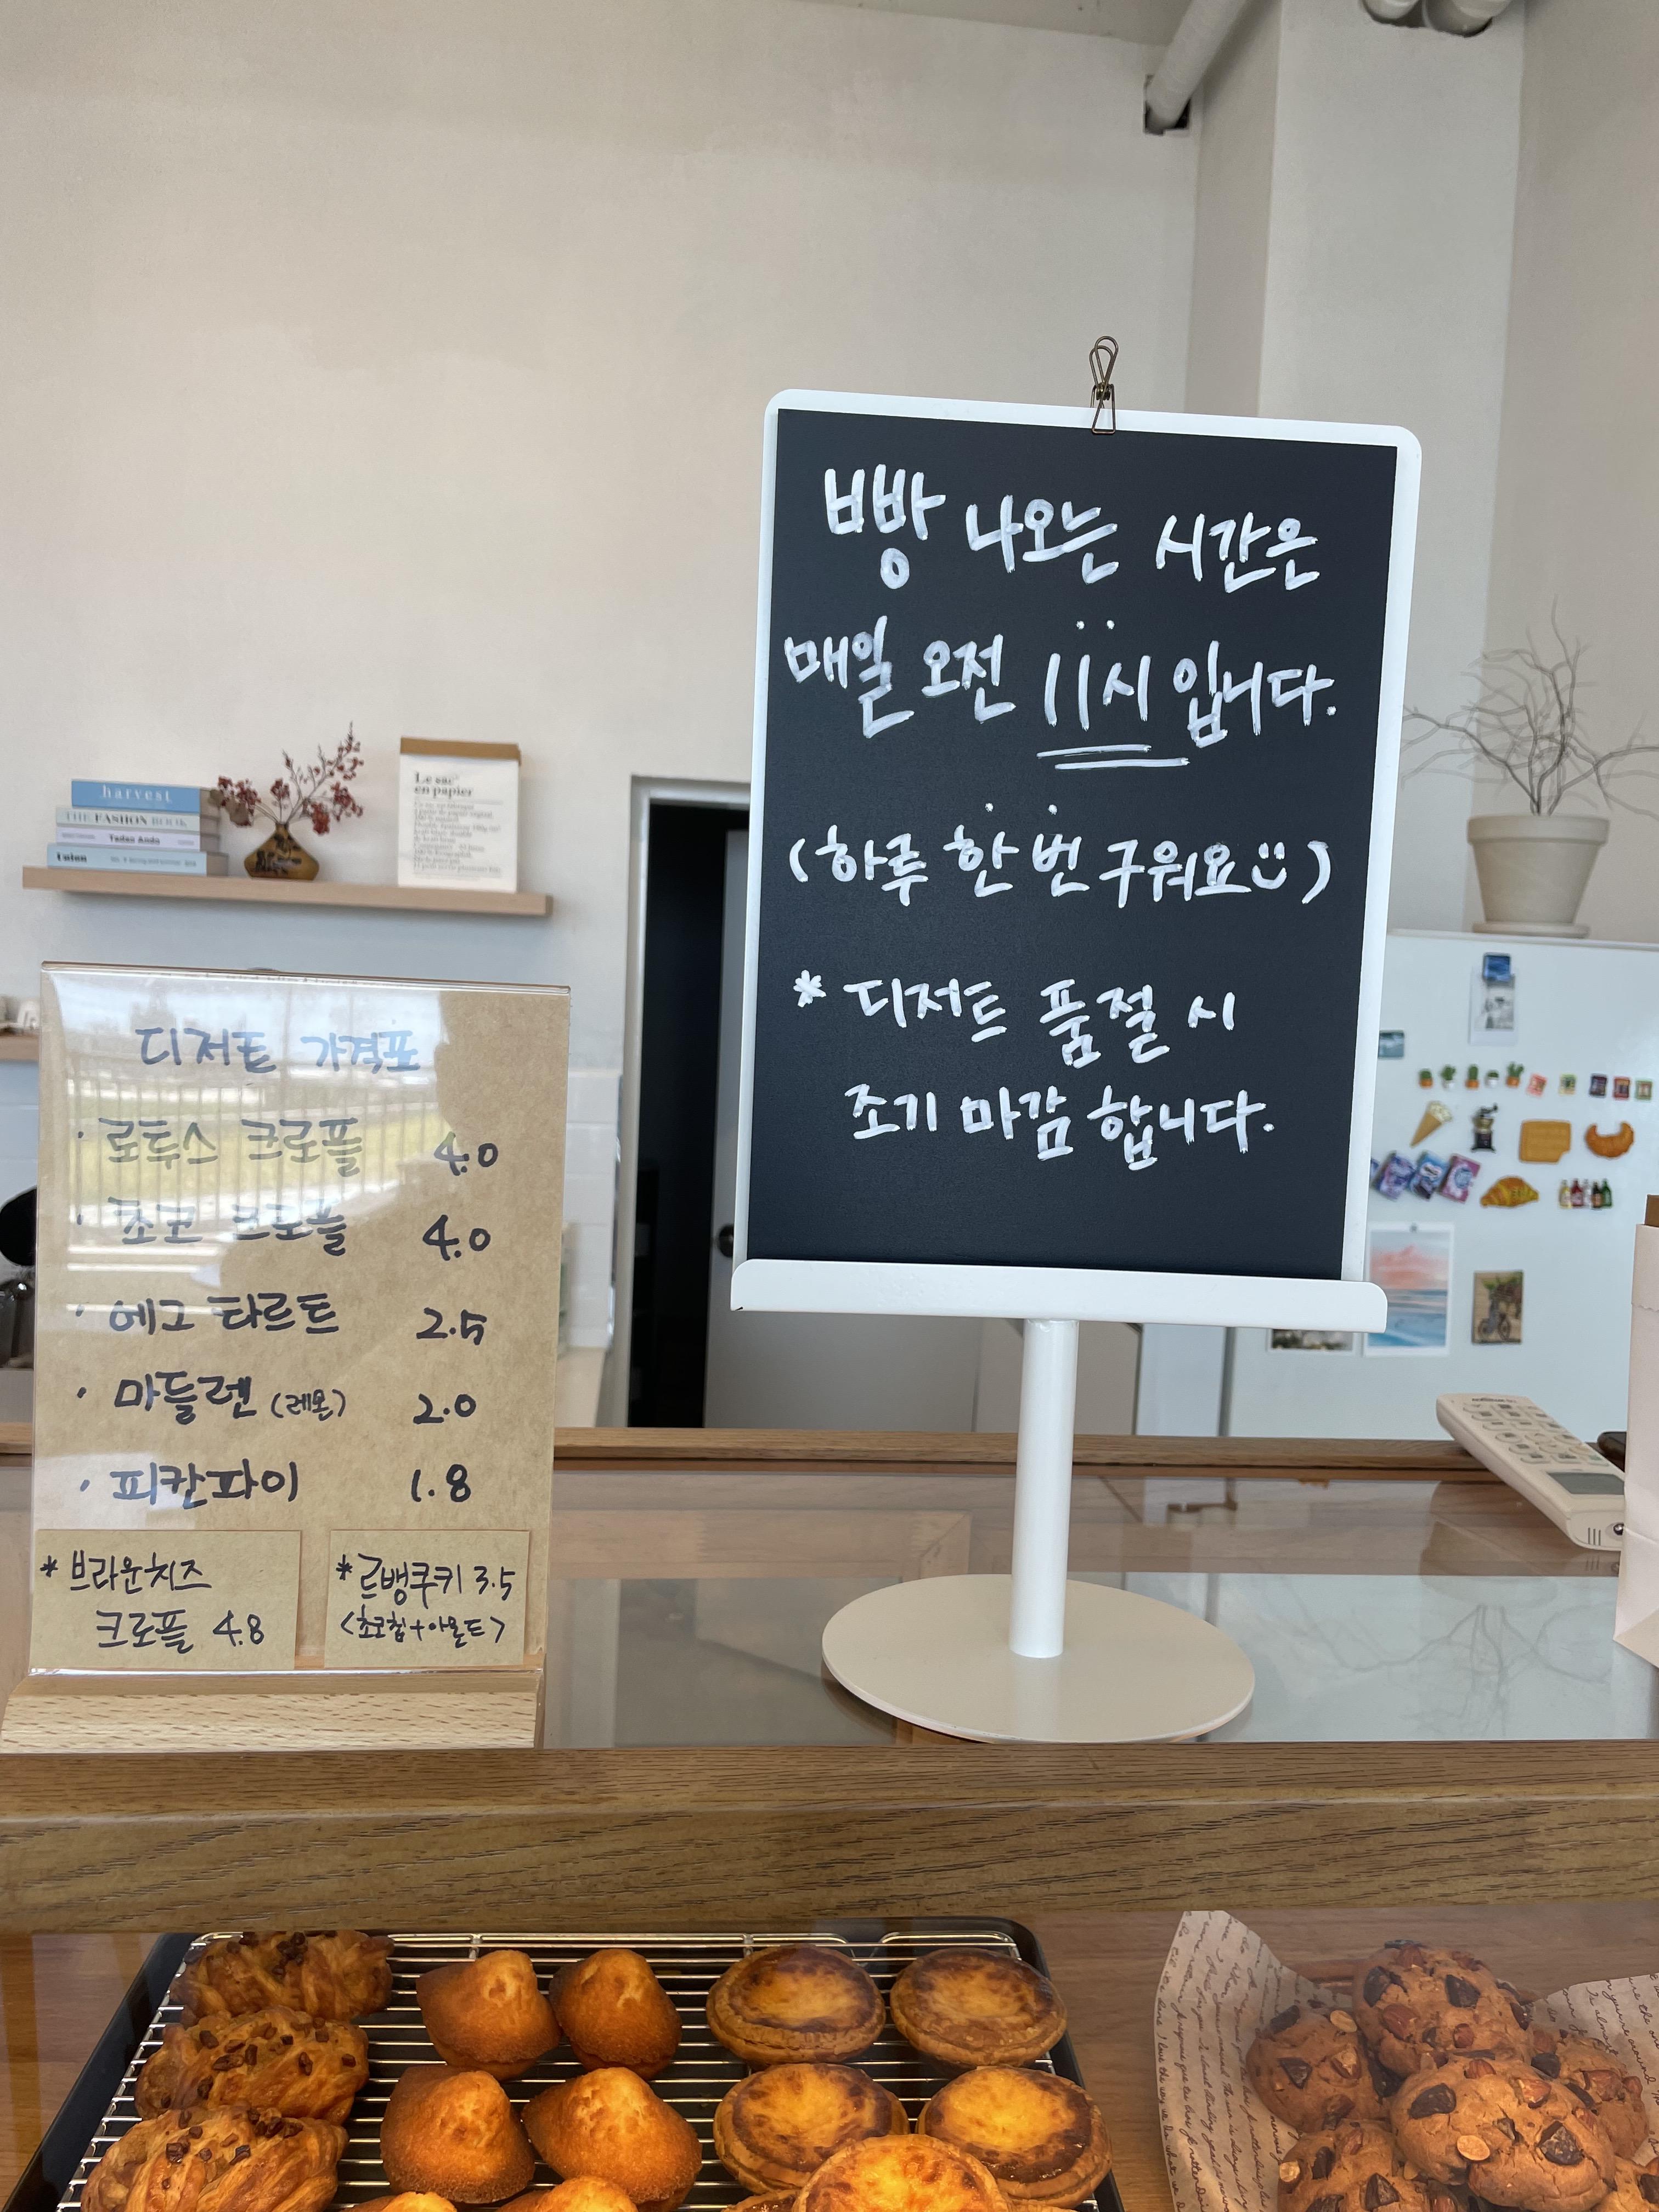 빵 나오는 시간은
매일 오전 11시 입니다.
(하루 한 번 구워요)
* 디저트 품절 시
조기 마감 합니다.
디저트 가격표
· 로투스 크로플 4.0
· 초코 크로플 4.0
· 에그 타르트 2.5
· 마들렌 (레몬) 2.0
· 피칸파이 1.8
* 브라운치즈
크로플 4.8
* 르뱅쿠키 3.5
<초코칩+아몬드>
harvest
THE FASHION BOOK
Tadao Ando
Le sac
en papier